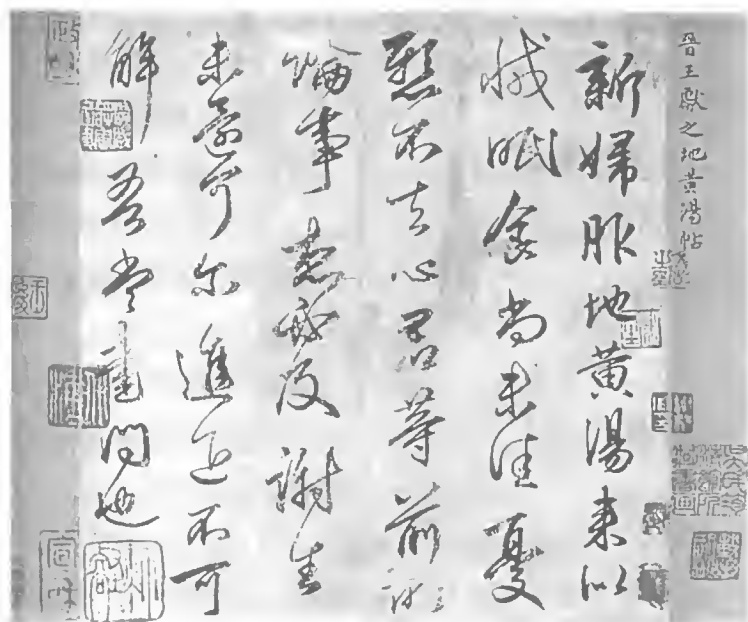 晉王獻之地黄湯帖
新婦服地黄湯来似
減眠食尚未佳憂
懸不去心君等前所
論事想必及謝生
未還可尔進退不可
解吾當書問也